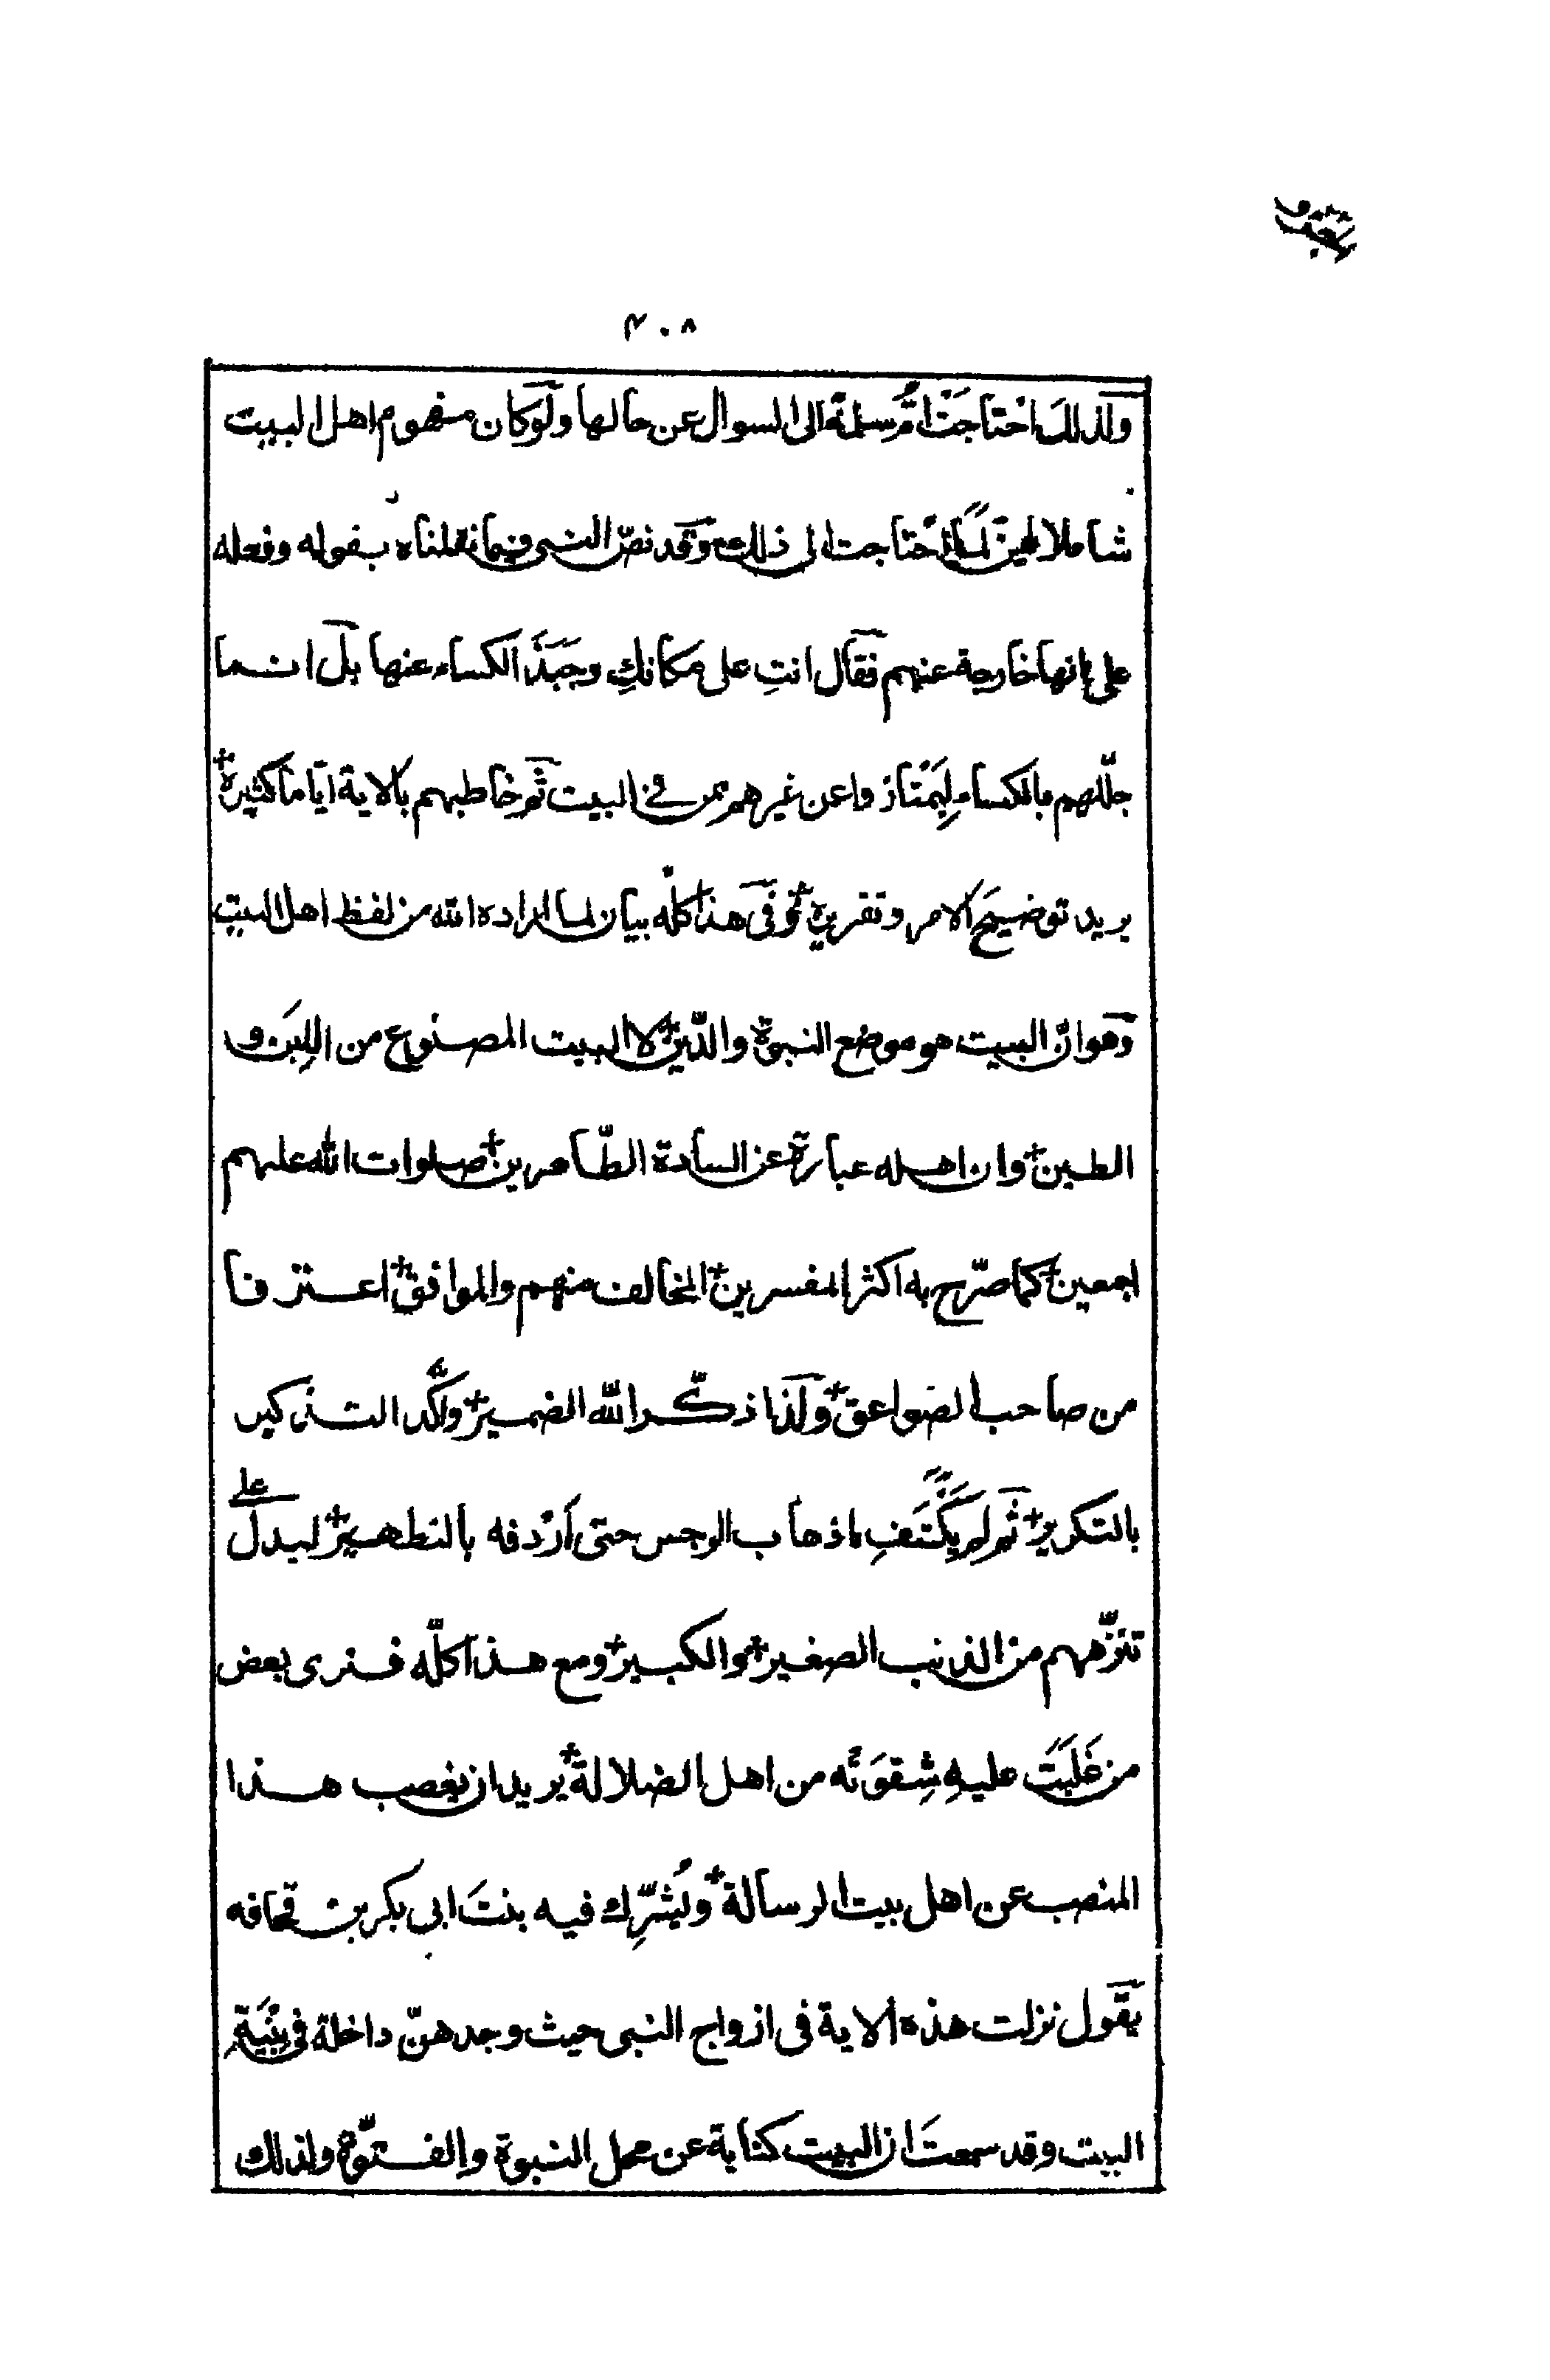 ۴۰۸
ولذلك احتاجَتْ امُّ سلمة الى السوال عن حالها ولو كان مفهوم اهل البيت
شاملا لهن لما احتاجت الى ذلك وقد نصّ النبى فيما نقلناه بقوله وفعله
على انها خارجة عنهم فقال انتِ على مكانكِ وجَبَذَ الكساء عنها بل انما
جلّلهم بالكساء لِيَمْتازوا عن غيرهم ممن فى البيت ثم خاطبهم بالاية ايّاما كثيرة
يريد توضيحَ الامر وتقريره وفى هذا كلّه بيان لما اراده الله من لفظ اهل البيت
وهو انّ البيت هو موضع النبوّة والدّين لا البيت المصنوع من اللبَن و
الطين وان اهله عبارة عن السادة الطّاهرين صلوات الله عليهم
اجمعين كما صرّح به اكثر المفسرين المخالف منهم والموافق اعترفا
من صاحب الصواعق ولذا ذكّر الله الضمير واكّد التذكير
بالتكرير ثم لم يكْتَفِ باذهاب الرجس حتى أرْدفه بالتطهير ليدل على
تنزّههم من الذنب الصغير والكبير ومع هذا كلّه فنرى بعض
من غَلَبَت عليهِ شِقوَتُه من اهل الضلالة يريد ان يغصب هذا
المنصب عن اهل بيت الرسالة ويُشَرِّك فيه بنتَ ابى بكر بن قحافه
يقول نزلت هذه الاية فى ازواج النبى حيث وجدهنّ داخلة فى
البيت وقد سمعتَ ان البيت كناية عن محل النبوة والفتوّة ولذلك